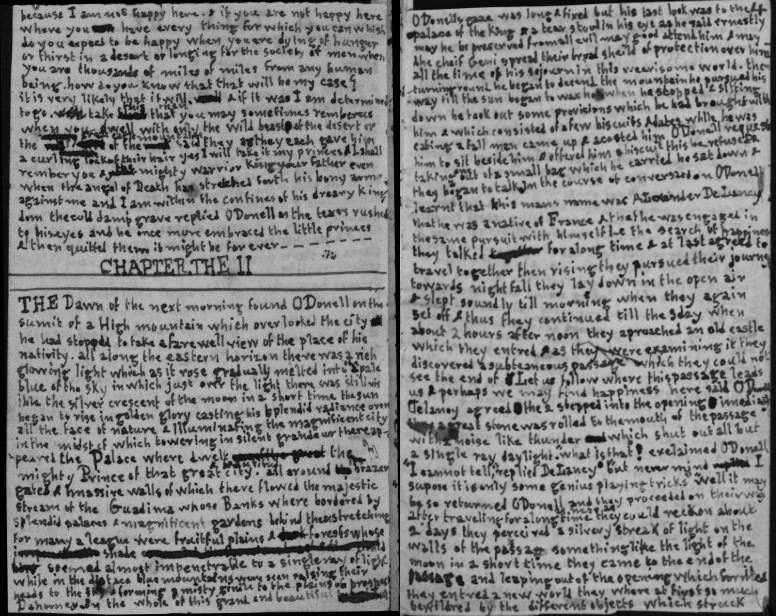 because I am not happy here & if you are not happy here
where you can have every thing for which you can wish
do you expect to be happy when you are dying of hunger
or thirst in a desert or longing for the society of men when
you are thousands of miles of miles from any human
being. how do you know that that will be my case I
it is very likely that it will. & if it was I am determined
to go. take this that you may sometimes remember us
when you dwell with only the wild beast of the desert or
the of the said they as they each gave him
a curling lock of their hair yes I will take it my princes & I shall
rember you & that mighty warrior King your father even
when the angel of Death has stretched forth his bony arm
against me and I am within the confines of his dreary King
dom the could damp grave replied ODonell as the tears rushed
to his eyes and he once more embraced the little princes
& then quitted them it might be for ever - - - - - - - -
CHAPTER.THE II
THE Dawn of the next morning found ODonell on the
sumit of a High mountain which over looked the city of
he had stopped to take a farewell view of the place of his
nativity. all along the eastern horizon there was a rich
glowing light which as it rose gradually melted into a pale
blue of the sky in which just over the light there was still vis
ible the silver crescent of the moon in a short time the sun
began to rise in golden glory casting his splendid radiance over
all the face of nature & Illuminating the magnificent city
in the midst of which towering in silent grandeur there ap-
peared the Palace where dwelt the
mighty Prince of that great & beautiful city all around brazen
gates & massive walls of which there flowed the majestic
stream of the Guadima whose Banks where bordered by
splendid palaces & magnificent gardens behind these stretching
for many a league were fruitful plains & forests whose
shade
seemed almost impenetrable to a single ray of light
while in the distace blue mountains were seen raising their
heads to the sky & forming a misty girdle to the plains of
Dahomey. on the whole of this grand and beautiful prospect
ODonells gaze was long & fixed but his last look was to the
palace of the King & a tear stood in his eye as he said ernestly
may he be preserved from all evil may good attend him & may
the cheif Geni spread their broad sheild of protection over him
all the time of his sojourn in this wearisome world. then
turning round he began to decend the mountain he pursued his
way till the sun began to wax hot when he stopped & sitting
down he took out some provisions which he had brought with
him & which consisted of a few biscuits & dates while he was
eating a tall man came up & acosted him ODonell requested
him to sit beside him & offered him a biscuit this he refused &
taking out of a small bag which he carried he sat down &
they began to talk in the course of conversation ODonell
learnt that this mans name was Alexander De Laney
that he was a native of France & that he was engaged in
the same pursuit with himself I.e the search of happiness
they talked for along time & at last agreed to
travel together then rising they pursued their journey
towards night fall they lay down in the open air
& slept soundly till morning when they again
set off & thus they continued till the 3 day when
about 2 hours after noon they aproached an old castle
which they entred & as they were examining it they
discovered a subteaneous passage which they could not
see the end of Let us follow where this passage leads
us & perhaps we may find happiness here said ODonell
Delaney agreed the 2 stepped into the opening immediatly
a great stone was rolled to the mouth of the passage
with a noise like thunder which shut out all but
a single ray daylight. what is that! exclaimed ODonell
I cannot tell, replied De Laney but never mind I
supose it is only some genius playing tricks well it may
be so returned ODonell and they proceeded on their way
after traveling for along time as near as they could reckon about
2 days they perceived a silvery streak of light on the
walls of the passage something like the light of the
moon in a short time they came to the end of the
passage and leaping out of the opening which formed it
they entred a new world they where at first so much
bewildered by the different objects which struck